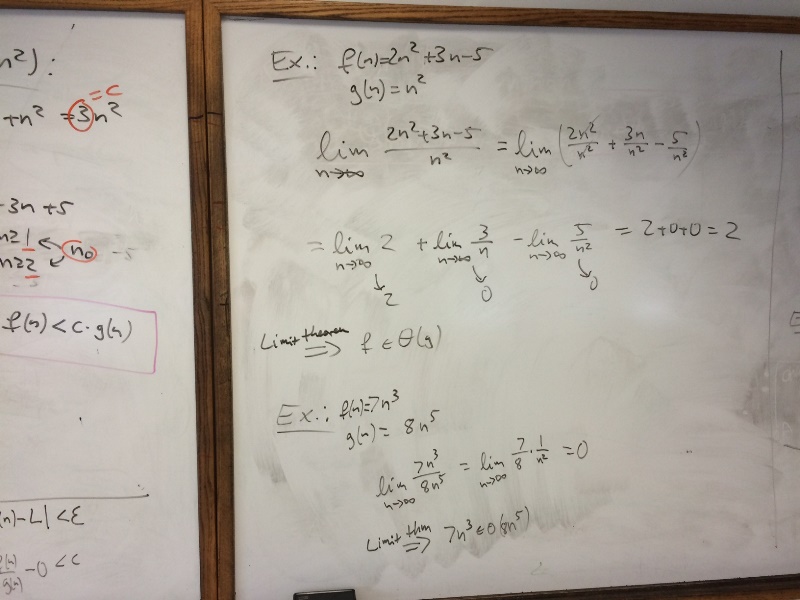 n²):
+n² = 3n²
= c
-3n+5
n≥1
n≥2
n₀
-5
f(n) < c·g(n)
(n)-L| < ε
f(n)/g(n) - 0 < c
Ex.: f(n)=2n²+3n-5
g(n)=n²
lim n→∞ (2n²+3n-5)/n² = lim n→∞ (2n²/n² + 3n/n² - 5/n²)
= lim n→∞ 2 + lim n→∞ 3/n - lim n→∞ 5/n² = 2+0+0=2
↓ 2 ↓ 0 ↓ 0
Limit theorem ⇒ f ∈ Θ(g)
Ex.: f(n)=7n³
g(n)= 8n⁵
lim n→∞ 7n³/8n⁵ = lim n→∞ 7/8 · 1/n² = 0
Limit thm ⇒ 7n³ ∈ O(8n⁵)